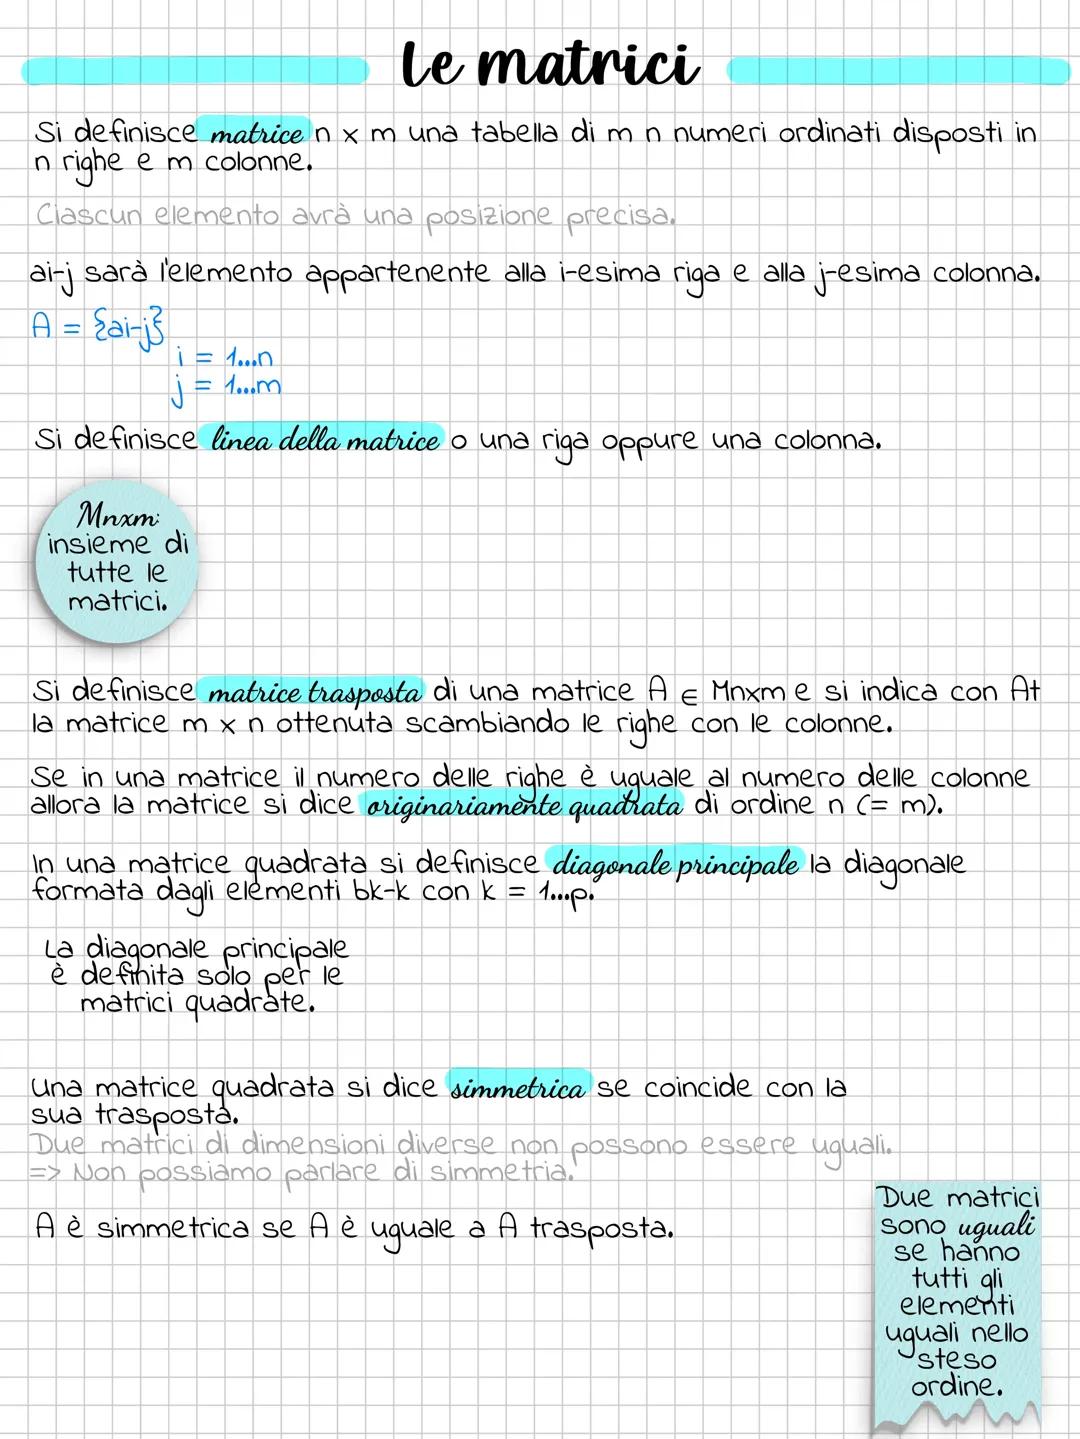 Le matrici
Si definisce matrice n x m una tabella di m n numeri ordinati disposti in
n righe e m colonne.
Ciascun elemento avrà una posizione precisa.
ai-j sarà l'elemento appartenente alla i-esima riga e alla j-esima colonna.
A = {ai-j}
i = 1...n
j = 1...m
Si definisce linea della matrice o una riga oppure una colonna.
Mnxm:
insieme di
tutte le
matrici.
Si definisce matrice trasposta di una matrice A ∈ Mnxm e si indica con At
la matrice m x n ottenuta scambiando le righe con le colonne.
Se in una matrice il numero delle righe è uguale al numero delle colonne
allora la matrice si dice originariamente quadrata di ordine n (= m).
In una matrice quadrata si definisce diagonale principale la diagonale
formata dagli elementi bk-k con k = 1...p.
La diagonale principale
è definita solo per le
matrici quadrate.
Una matrice quadrata si dice simmetrica se coincide con la
sua trasposta.
Due matrici di dimensioni diverse non possono essere uguali.
=> Non possiamo parlare di simmetria.
A è simmetrica se A è uguale a A trasposta.
Due matrici
sono uguali
se hanno
tutti gli
elementi
uguali nello
steso
ordine.